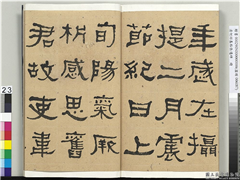 年歲在攝
提二月震
節紀日上
旬陽氣厥
析感思舊
君故吏韋
23